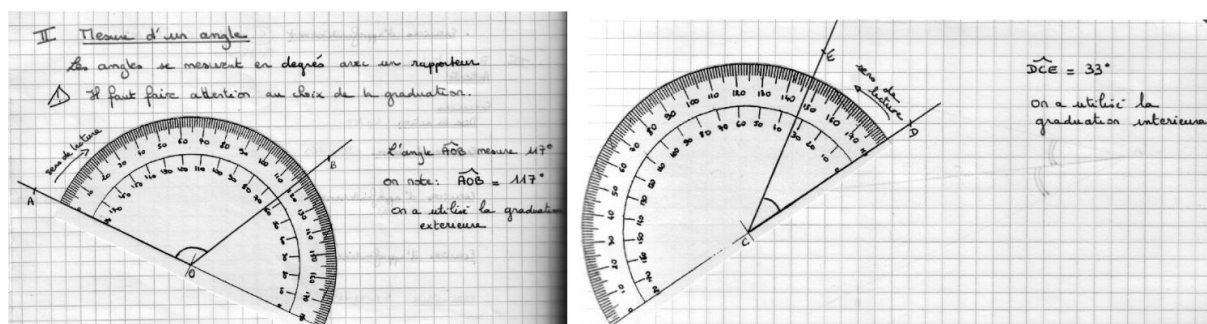 II Mesure d'un angle
Les angles se mesurent en degrés avec un rapporteur
Il faut faire attention au choix de la graduation.
sens de lecture
A
B
O
L'angle AOB mesure 117°
on note: AOB = 117°
on a utilisé la graduation
exterieure
E
sens de
lecture
D
C
DCE = 33°
on a utilisé la
graduation interieure